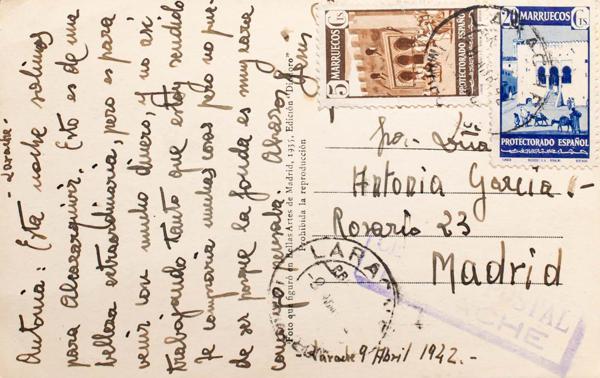 Larache-
Antonia: Esta noche salimos
para Alcazarquivir. Esto es de una
belleza extraordinaria, pero es para
venir con mucho dinero, y no así
trabajando tanto que estoy rendido
Te compraria muchas cosas pero no pue-
de ser porque la fonda es muy cara
como yo pensaba. Abrazos
Foto que figuró en Bellas Artes de Madrid, 1935, Edición "Directo"
Prohibida la reproducción
5 MARRUECOS Cts
PROTECTORADO ESPAÑOL
20 MARRUECOS Cts
PROTECTORADO ESPAÑOL
LARACHE
Antonia García.-
Rosario 23
Madrid
LARAC
POSTAL
ACHE
Larache 9 Abril 1942.-